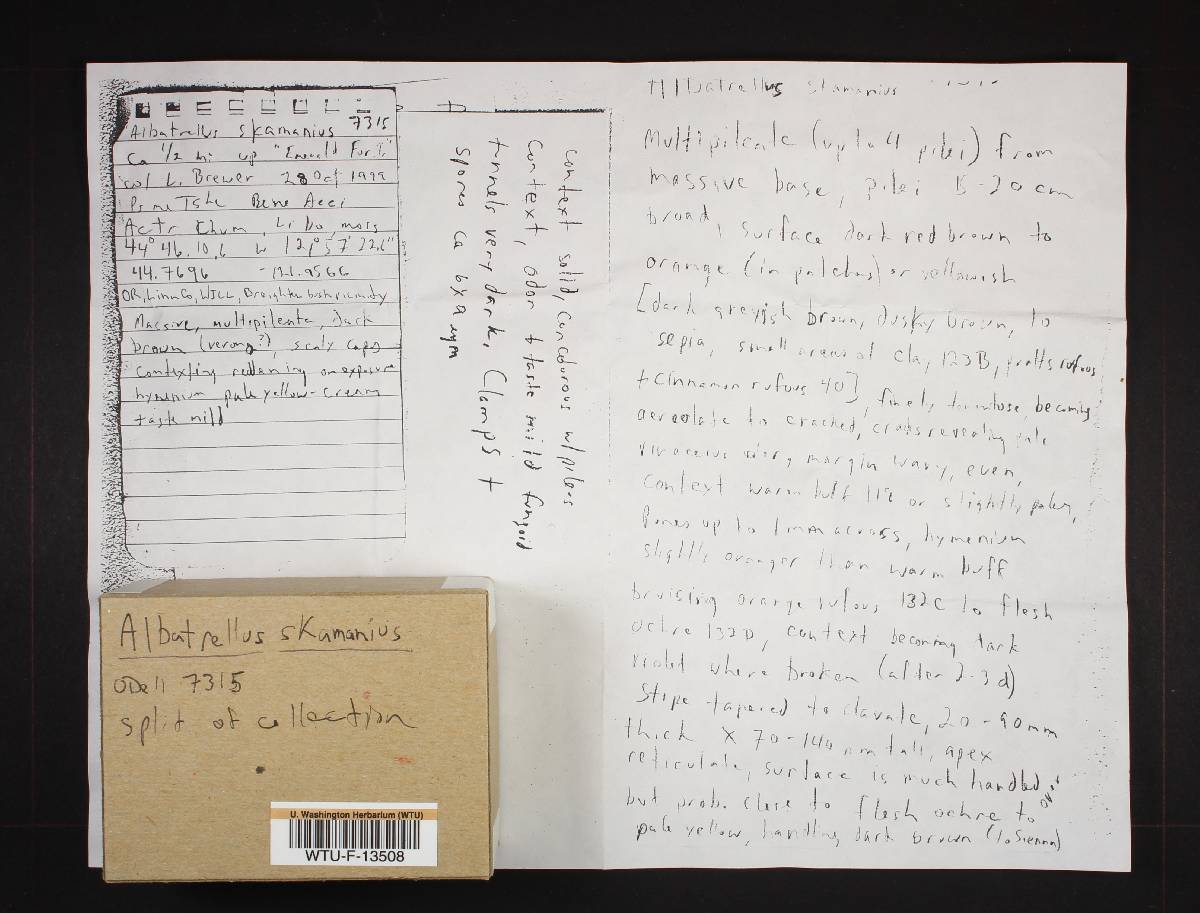 Albatrellus skamanius 7315
Ca 1/2 mi up "Emerald For. T."
col L. Brewer 28 Oct 1999
Psme Tshe Bene Acci
Actr Chum, Libo, moss
44° 46. 10.6 W 121° 57' 22.6"
44.7696 -121.9566
OR, Linn Co, WILL, Breitenbush vicinity
Massive, multipileate, dark
brown (verong?), scaly caps
context reddening on exposure
hymenium pale yellow-cream
taste mild
context solid, concolorous w/ pores
Context, odor + taste mild fungoid
tunnels very dark, Clamps +
spores ca 6x9 µm
Albatrellus skamanius
Multipileate (up to 4 pilei) from
massive base, pilei 15-20 cm
broad, surface dark red brown to
orange (in patches) or yellowish
[dark greyish brown, dusky brown, to
sepia, small areas of clay 123B, pratts rufous
+ cinnamon rufous 40], finely tomentose, becoming
areolate to cracked, cracks revealing pale
margin wavy, even,
context warm buff 118 or slightly paler,
Pores up to 1 mm across, hymenium
slightly oranger than warm buff
bruising orange rufous 132C to flesh
ochre 132D, context becoming dark
violet where broken (after 2-3 d)
Stipe tapered to clavate, 20-90mm
thick x 70-140 mm tall, apex
reticulate, surface is much handled
but prob. close to flesh ochre to
pale yellow, handling dark brown (to Sienna)
Albatrellus skamanius
ODell 7315
split of collection
U. Washington Herbarium (WTU)
WTU-F-13508